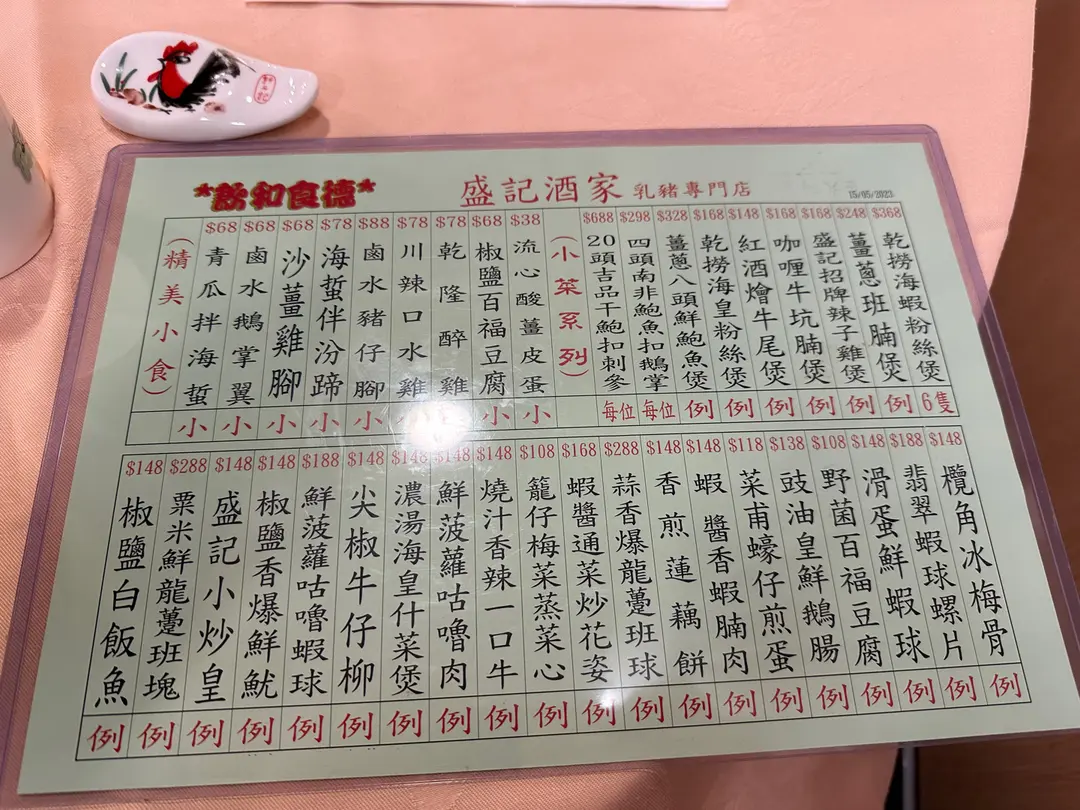 *飲和食德*
盛記酒家 乳豬專門店
15/05/2023
(精美小食)
$68 青瓜拌海蜇 小
$68 鹵水鵝掌翼 小
$68 沙薑雞腳 小
$78 海蜇伴汾蹄 小
$88 鹵水豬仔腳 小
$78 川辣口水雞
$78 乾隆醉雞
$68 椒鹽百福豆腐 小
$38 流心酸薑皮蛋 小
(小菜系列)
$688 20頭吉品干鮑扣刺參 每位
$298 四頭南非鮑魚扣鵝掌 每位
$328 薑蔥八頭鮮鮑魚煲 例
$168 乾撈海皇粉絲煲 例
$148 紅酒燴牛尾煲 例
$168 咖喱牛坑腩煲 例
$168 盛記招牌辣子雞煲 例
$248 薑蔥班腩煲 例
$368 乾撈海蝦粉絲煲 6隻
$148 椒鹽白飯魚 例
$288 粟米鮮龍躉班塊 例
$148 盛記小炒皇 例
$148 椒鹽香爆鮮魷 例
$188 鮮菠蘿咕嚕蝦球 例
$148 尖椒牛仔柳 例
$148 濃湯海皇什菜煲 例
$148 鮮菠蘿咕嚕肉 例
$148 燒汁香辣一口牛 例
$108 籠仔梅菜蒸菜心 例
$168 蝦醬通菜炒花姿 例
$288 蒜香爆龍躉班球 例
$148 香煎蓮藕餅 例
$148 蝦醬香蝦腩肉 例
$118 菜甫蠔仔煎蛋 例
$138 豉油皇鮮鵝腸 例
$108 野菌百福豆腐 例
$148 滑蛋鮮蝦球 例
$188 翡翠蝦球螺片 例
$148 欖角冰梅骨 例